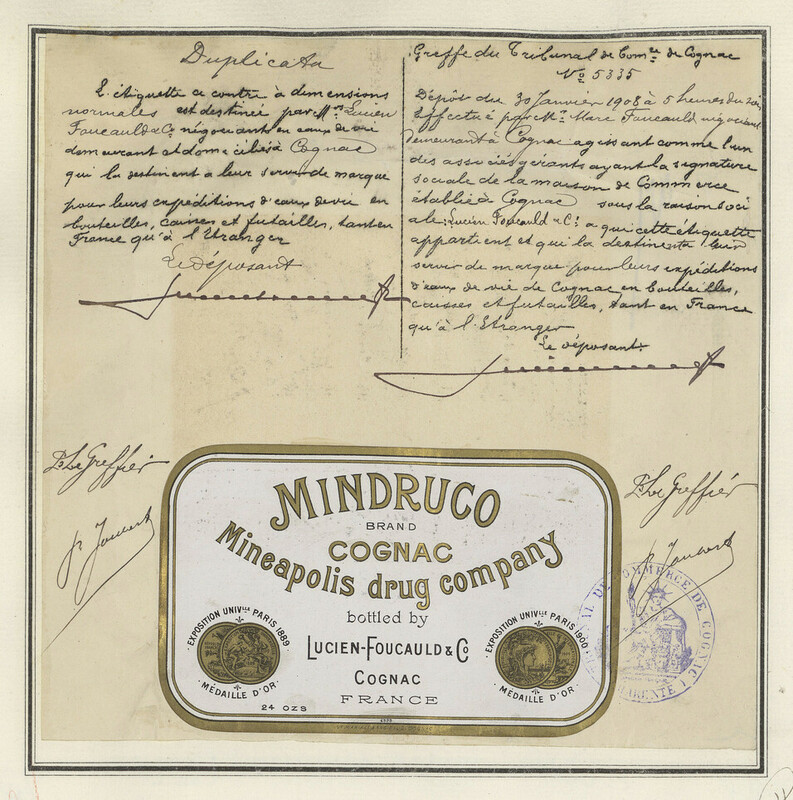 Duplicata
L'étiquette ci contre à dimensions
normales est destinée par Mrs Lucien
Foucauld & Co négociants en eaux de vie
demeurant et domiciliés à Cognac
qui la destinent à leur servir de marque
pour leurs expéditions d'eaux de vie en
bouteilles, caisses et futailles, tant en
France qu'à l'Etranger
Le déposant
Greffe du Tribunal de Comce de Cognac
No 5335
Dépôt du 30 Janvier 1908 à 5 heures du soir
Effectué par Mr Marc Foucauld négociant
demeurant à Cognac agissant comme l'un
des associés gérants ayant la signature
sociale de la maison de Commerce
établie à Cognac sous la raison soci
ale: Lucien Foucauld & Co a qui cette étiquette
appartient et qui la destinent à leur
servir de marque pour leurs expéditions
d'eaux de vie de Cognac en bouteilles,
caisses et futailles, tant en France
qu'à l'Etranger
Le déposant
Le Greffier
Le Greffier
MINDRUCO
BRAND
COGNAC
Mineapolis drug company
bottled by
LUCIEN-FOUCAULD & Co
COGNAC
FRANCE
EXPOSITION UNIVlle PARIS 1889
MÉDAILLE D'OR
EXPOSITION UNIVlle PARIS 1900
MÉDAILLE D'OR
24 OZS
TRIBUNAL DE COMMERCE DE COGNAC
CHARENTE